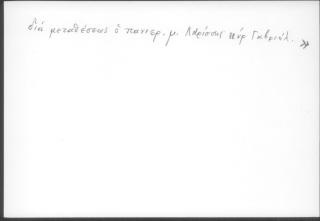 διά μεταθέσεως ὁ πανιερ. μ. Λαρίσσης κύρ Γαβριήλ. »